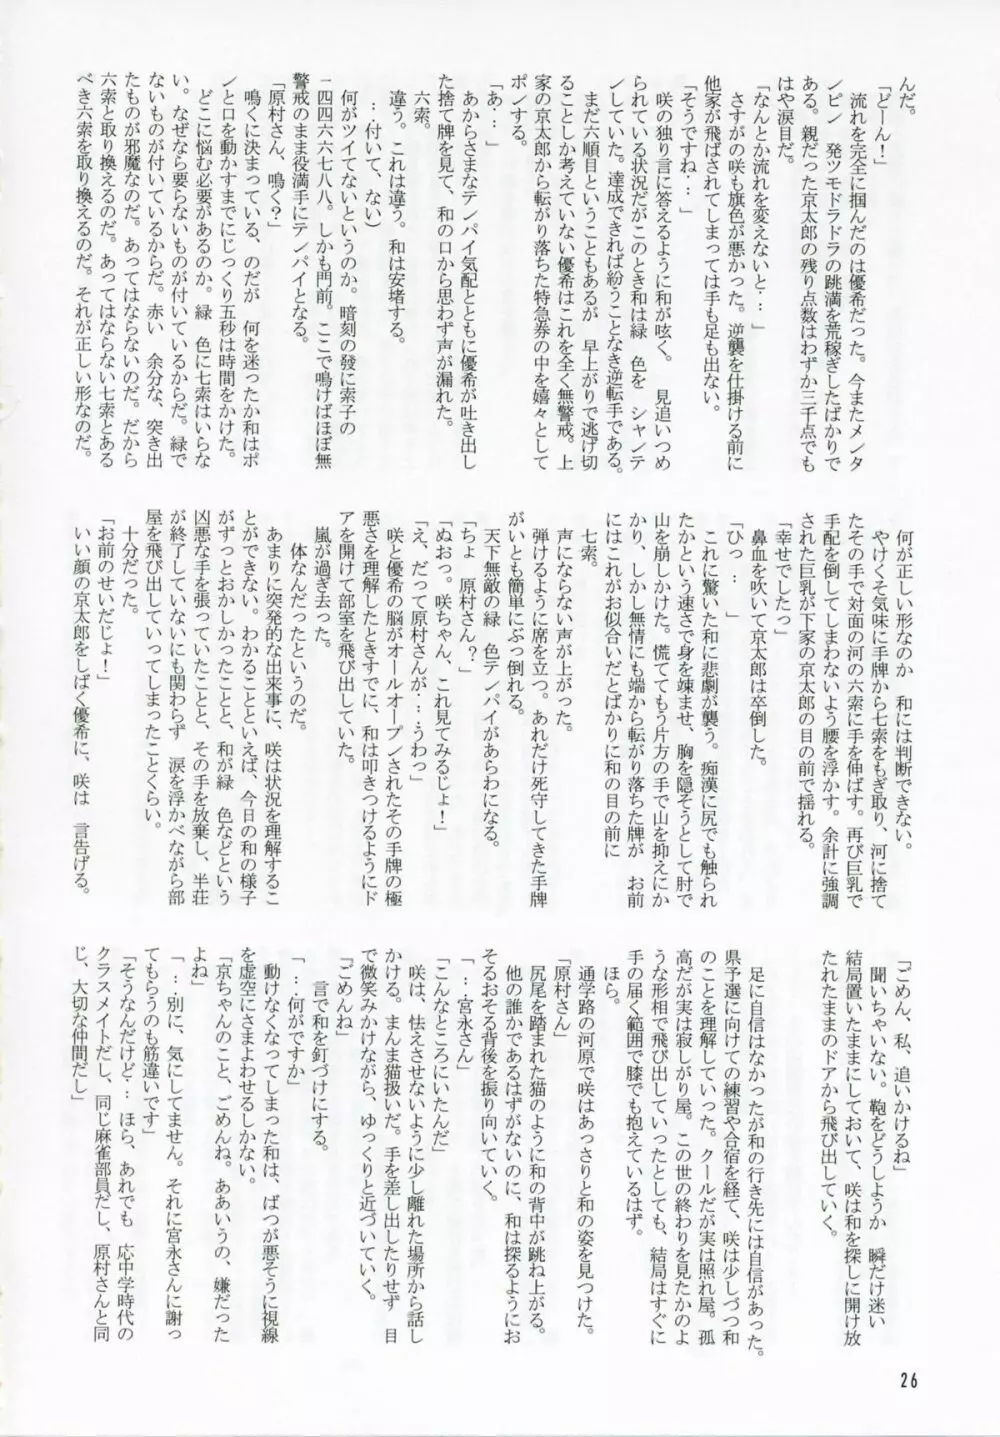 んだ。
「どーん!」
流れを完全に掴んだのは優希だった。今またメンタ
ンピン 発ツモドラドラの跳満を荒稼ぎしたばかりで
ある。親だった京太郎の残り点数はわずか三千点でも
はや涙目だ。
「なんとか流れを変えないと…」
さすがの咲も旗色が悪かった。逆襲を仕掛ける前に
他家が飛ばされてしまっては手も足も出ない。
「そうですね…」
咲の独り言に答えるように和が呟く。 見追いつめ
られている状況だがこのとき和は緑 色を シャンテ
ンしていた。達成できれば紛うことなき逆転手である。
まだ六順目ということもあるが 早上がりで逃げ切
ることしか考えていない優希はこれを全く無警戒。上
家の京太郎から転がり落ちた特急券の中を嬉々として
ポンする。
「あ…」
あからさまなテンパイ気配とともに優希が吐き出し
た捨て牌を見て、和の口から思わず声が漏れた。
六索。
違う。これは違う。和は安堵する。
…付いて、ない)
何がツイてないというのか。暗刻の發に索子の
二四四六六七八八。しかも門前。ここで鳴けばほぼ無
警戒のまま役満手にテンパイとなる。
「原村さん、鳴く?」
鳴くに決まっている、のだが 何を迷ったか和はポ
ンと口を動かすまでにじっくり五秒は時間をかけた。
どこに悩む必要があるのか。緑 色に七索はいらな
い。なぜなら要らないものが付いているからだ。緑で
ないものが付いているからだ。赤い 余分な、突き出
たものが邪魔なのだ。あってはならないのだ。だから
六索と取り換えるのだ。あってはならない七索とある
べき六索を取り換えるのだ。それが正しい形なのだ。
何が正しい形なのか 和には判断できない。
やけくそ気味に手牌から七索をもぎ取り、河に捨て
たその手で対面の河の六索に手を伸ばす。再び巨乳で
手配を倒してしまわないよう腰を浮かす。余計に強調
された巨乳が下家の京太郎の目の前で揺れる。
「幸せでしたっ」
鼻血を吹いて京太郎は卒倒した。
「ひっ… 」
これに驚いた和に悲劇が襲う。痴漢に尻でも触られ
たかという速さで身を竦ませ、胸を隠そうとして肘で
山を崩しかけた。慌ててもう片方の手で山を抑えにか
かり、しかし無情にも端から転がり落ちた牌が お前
にはこれがお似合いだとばかりに和の目の前に
七索。
声にならない声が上がった。
弾けるように席を立つ。あれだけ死守してきた手牌
がいとも簡単にぶっ倒れる。
天下無敵の緑 色テンパイがあらわになる。
「ちょ 原村さん?」
「ぬおっ。咲ちゃん、これ見てみるじょ!」
「え、だって原村さんが…うわっ」
咲と優希の脳がオールオープンされたその手牌の極
悪さを理解したときすでに、和は叩きつけるようにド
アを開けて部室を飛び出していた。
嵐が過ぎ去った。
体なんだったというのだ。
あまりに突発的な出来事に、咲は状況を理解するこ
とができない。わかることといえば、今日の和の様子
がずっとおかしかったことと、和が緑 色などという
凶悪な手を張っていたことと、その手を放棄し、半荘
が終了していないにも関わらず 涙を浮かべながら部
屋を飛び出していってしまったことくらい。
十分だった。
「お前のせいだじょ!」
いい顔の京太郎をしばく優希に、咲は 言告げる。
「ごめん、私、追いかけるね」
聞いちゃいない。鞄をどうしようか 瞬だけ迷い
結局置いたままにしておいて、咲は和を探しに開け放
たれたままのドアから飛び出していく。
足に自信はなかったが和の行き先には自信があった。
県予選に向けての練習や合宿を経て、咲は少しづつ和
のことを理解していった。クールだが実は照れ屋。孤
高だが実は寂しがり屋。この世の終わりを見たかのよ
うな形相で飛び出していったとしても、結局はすぐに
手の届く範囲で膝でも抱えているはず。
ほら。
通学路の河原で咲はあっさりと和の姿を見つけた。
「原村さん」
尻尾を踏まれた猫のように和の背中が跳ね上がる。
他の誰かであるはずがないのに、和は探るようにお
そるおそる背後を振り向いていく。
「…宮永さん」
「こんなところにいたんだ」
咲は、怯えさせないように少し離れた場所から話し
かける。まんま猫扱いだ。手を差し出したりせず 目
で微笑みかけながら、ゆっくりと近づいていく。
「ごめんね」
言で和を釘づけにする。
「…何がですか」
動けなくなってしまった和は、ばつが悪そうに視線
を虚空にさまよわせるしかない。
「京ちゃんのこと、ごめんね。ああいうの、嫌だった
よね」
「…別に、気にしてません。それに宮永さんに謝っ
てもらうのも筋違いです」
「そうなんだけど…ほら、あれでも 応中学時代の
クラスメイトだし、同じ麻雀部員だし、原村さんと同
じ、大切な仲間だし」
26